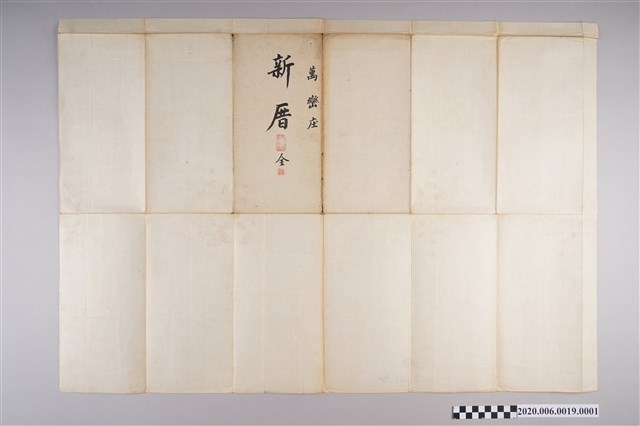 萬巒庄
新厝
全
2020.006.0019.0001